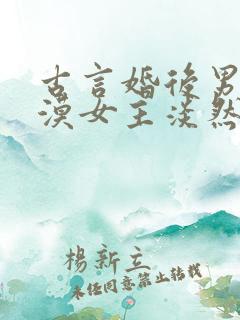 古言婚后男
漠女主淡然
杨新立
未经同意禁止转载